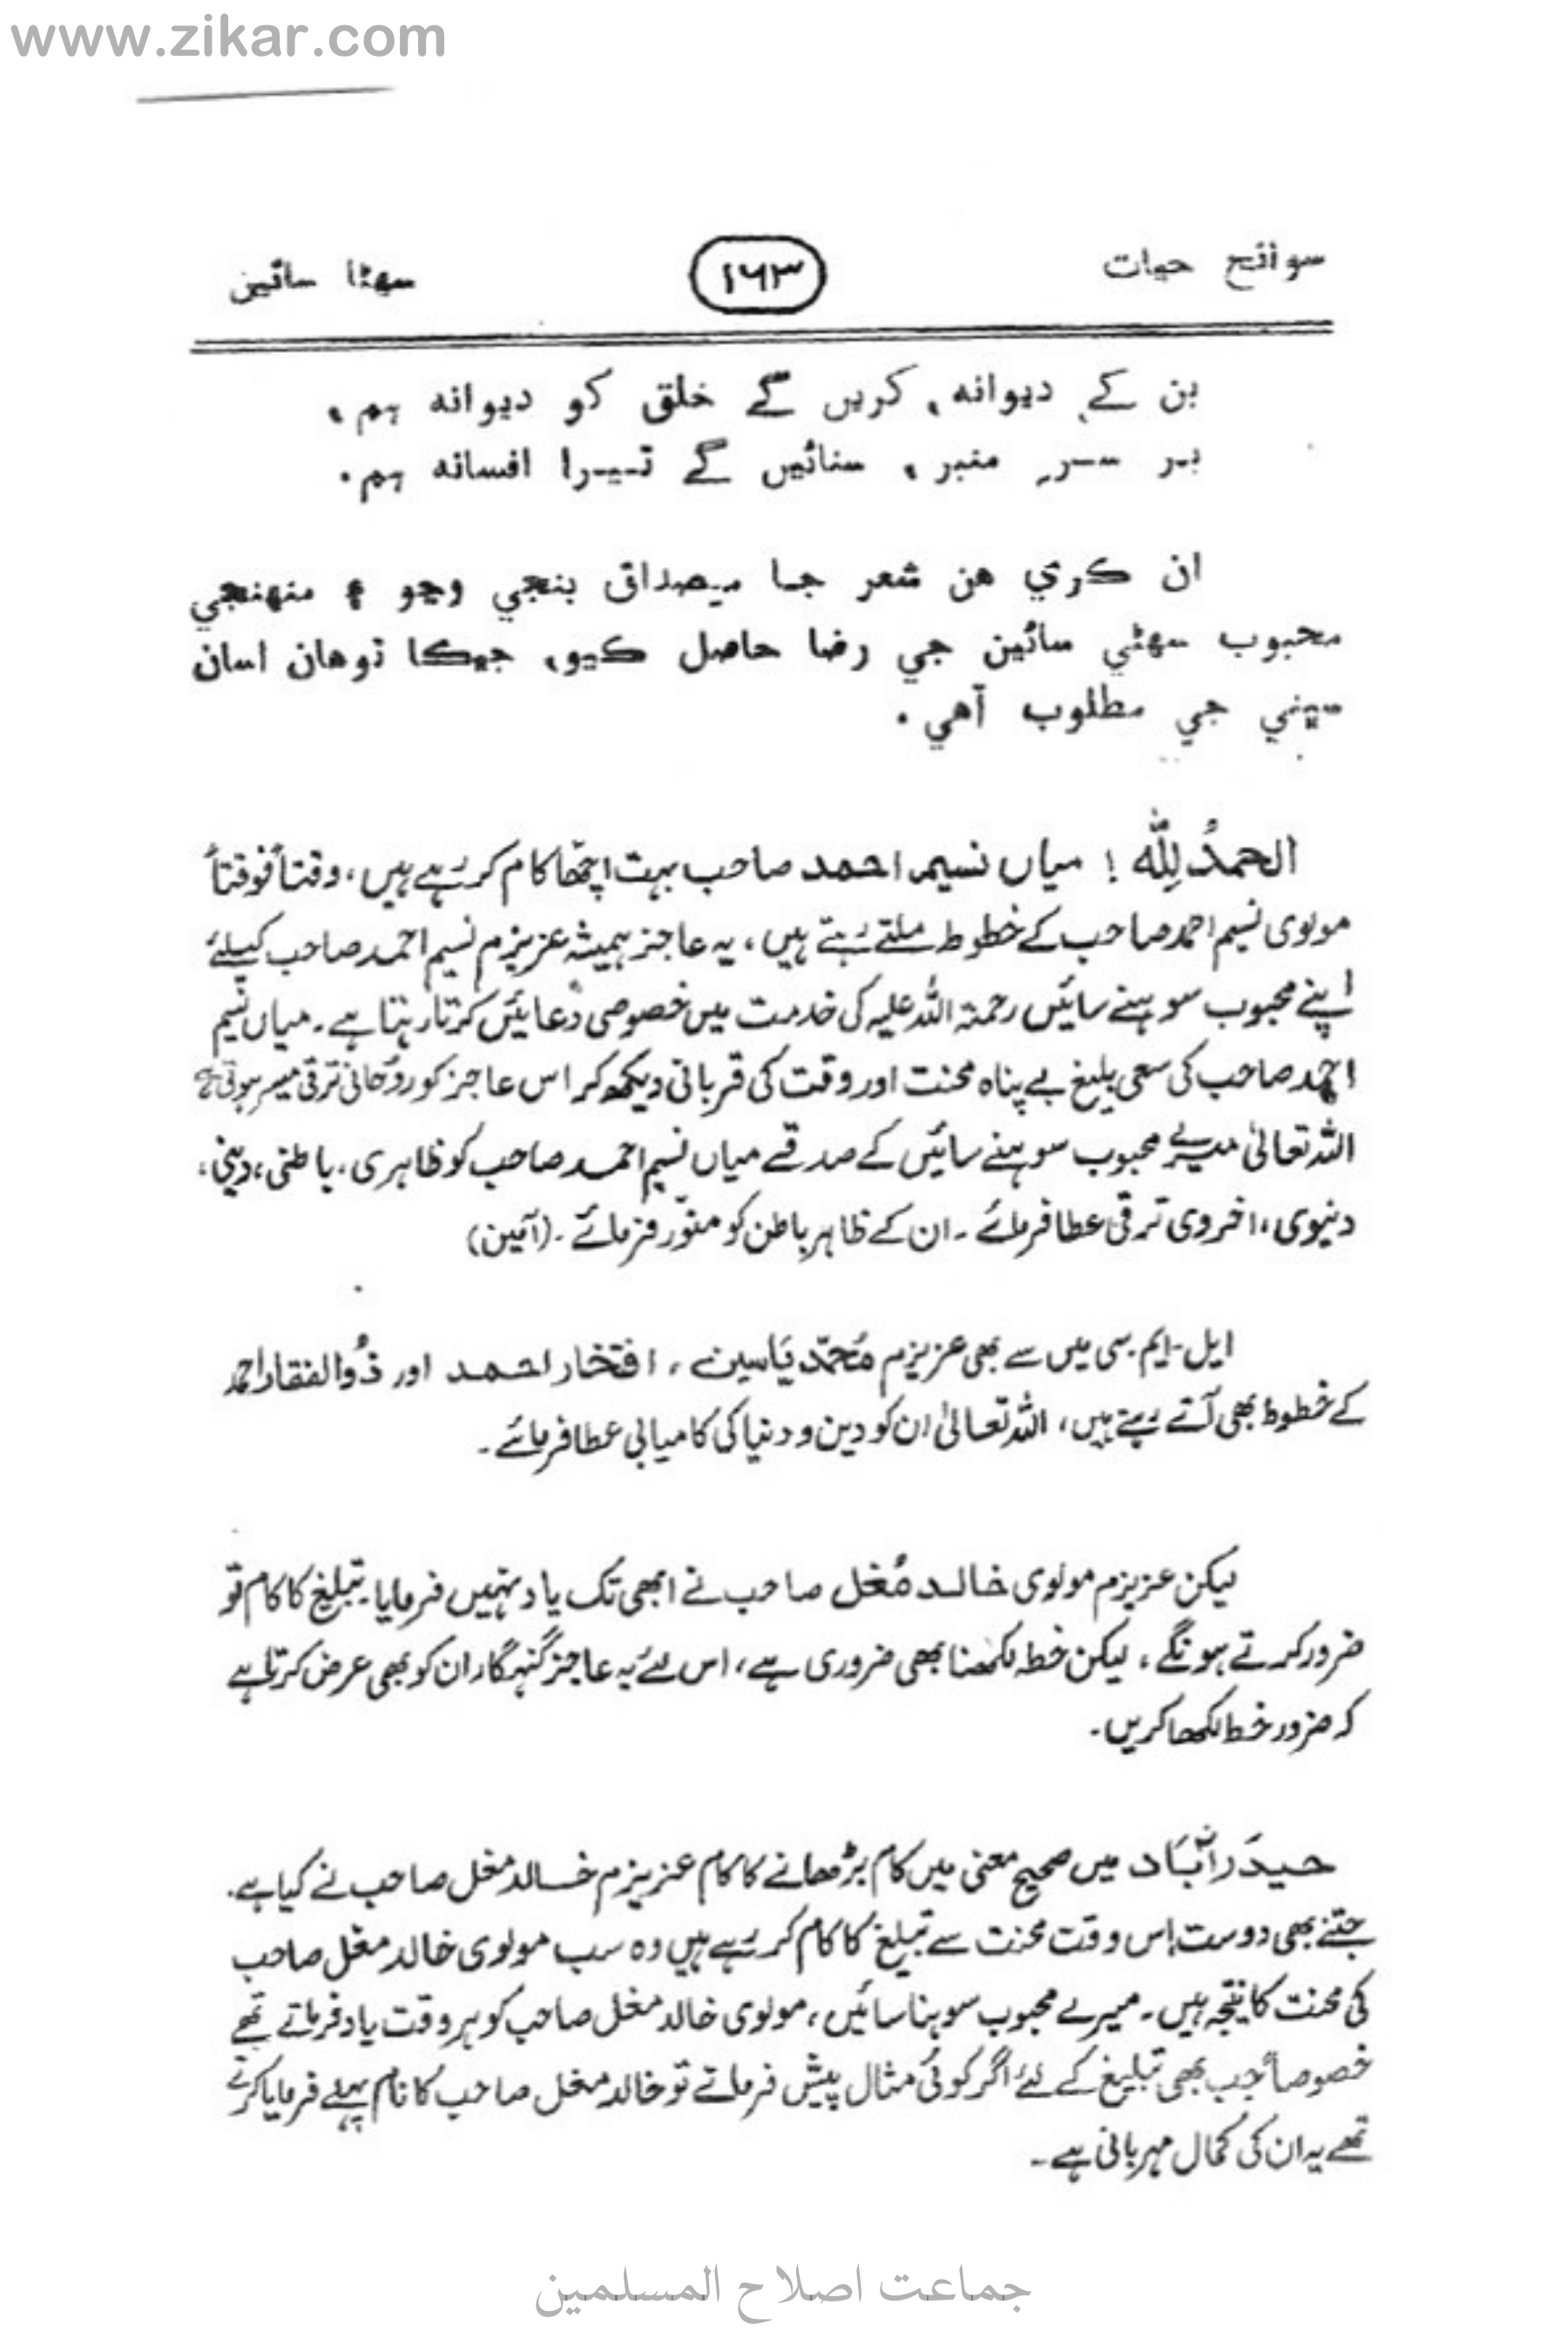 www.zikar.com
سوانح حيات ١٦٣ سهڻا سائين
بن کے دیوانہ، کریں گے خلق کو دیوانہ ہم،
بر سرِ منبر، سنائیں گے تیرا افسانہ ہم.
ان ڪري هن شعر جا ميصداق بنجي وڃو ۽ منهنجي
محبوب سهڻي سائين جي رضا حاصل ڪيو، جيڪا توهان اسان
سڀني جي مطلوب آهي.
الحمدُ لِلّٰہ ! میاں نسیم احمد صاحب بہت اچھا کام کر رہے ہیں، وقتاً فوقتاً
مولوی نسیم احمد صاحب کے خطوط ملتے رہتے ہیں، یہ عاجز ہمیشہ عزیزم نسیم احمد صاحب کیلئے
اپنے محبوب سوہنے سائیں رحمۃ اللہ علیہ کی خدمت میں خصوصی دُعائیں کرتا رہتا ہے۔ میاں نسیم
احمد صاحب کی سعی بلیغ بے پناہ محنت اور وقت کی قربانی دیکھ کر اس عاجز کو روُحانی ترقی میسر ہوتی ہے
اللہ تعالیٰ میرے محبوب سوہنے سائیں کے صدقے میاں نسیم احمد صاحب کو ظاہری، باطنی، دینی،
دنیوی، اخروی ترقی عطا فرمائے ۔ ان کے ظاہر باطن کو منوّر فرمائے ۔ (آمین)
ایل۔ایم۔سی میں سے بھی عزیزم مُحمّد یَاسین، افتخار احمد اور ذُوالفقار احمد
کے خطوط بھی آتے رہتے ہیں، اللہ تعالیٰ ان کو دین و دنیا کی کامیابی عطا فرمائے ۔
لیکن عزیزم مولوی خالد مُغل صاحب نے ابھی تک یاد نہیں فرمایا۔ تبلیغ کا کام تو
ضرور کرتے ہونگے، لیکن خط لکھنا بھی ضروری ہے، اس لئے یہ عاجز گنہگار ان کو بھی عرض کرتا ہے
کہ ضرور خط لکھا کریں۔
حیدَرآبَاد میں صحیح معنی میں کام بڑھانے کا کام عزیزم خالد مغل صاحب نے کیا ہے.
جتنے بھی دوست اِس وقت محنت سے تبلیغ کا کام کر رہے ہیں وہ سب مولوی خالد مغل صاحب
کی محنت کا نتیجہ ہیں۔ میرے محبوب سوہنا سائیں، مولوی خالد مغل صاحب کو ہر وقت یاد فرماتے تھے
خصوصاً جب بھی تبلیغ کے لئے اگر کوئی مثال پیش فرماتے تو خالد مغل صاحب کا نام پہلے فرمایا کرتے
تھے یہ ان کی کمال مہربانی ہے ۔
جماعت اصلاح المسلمین